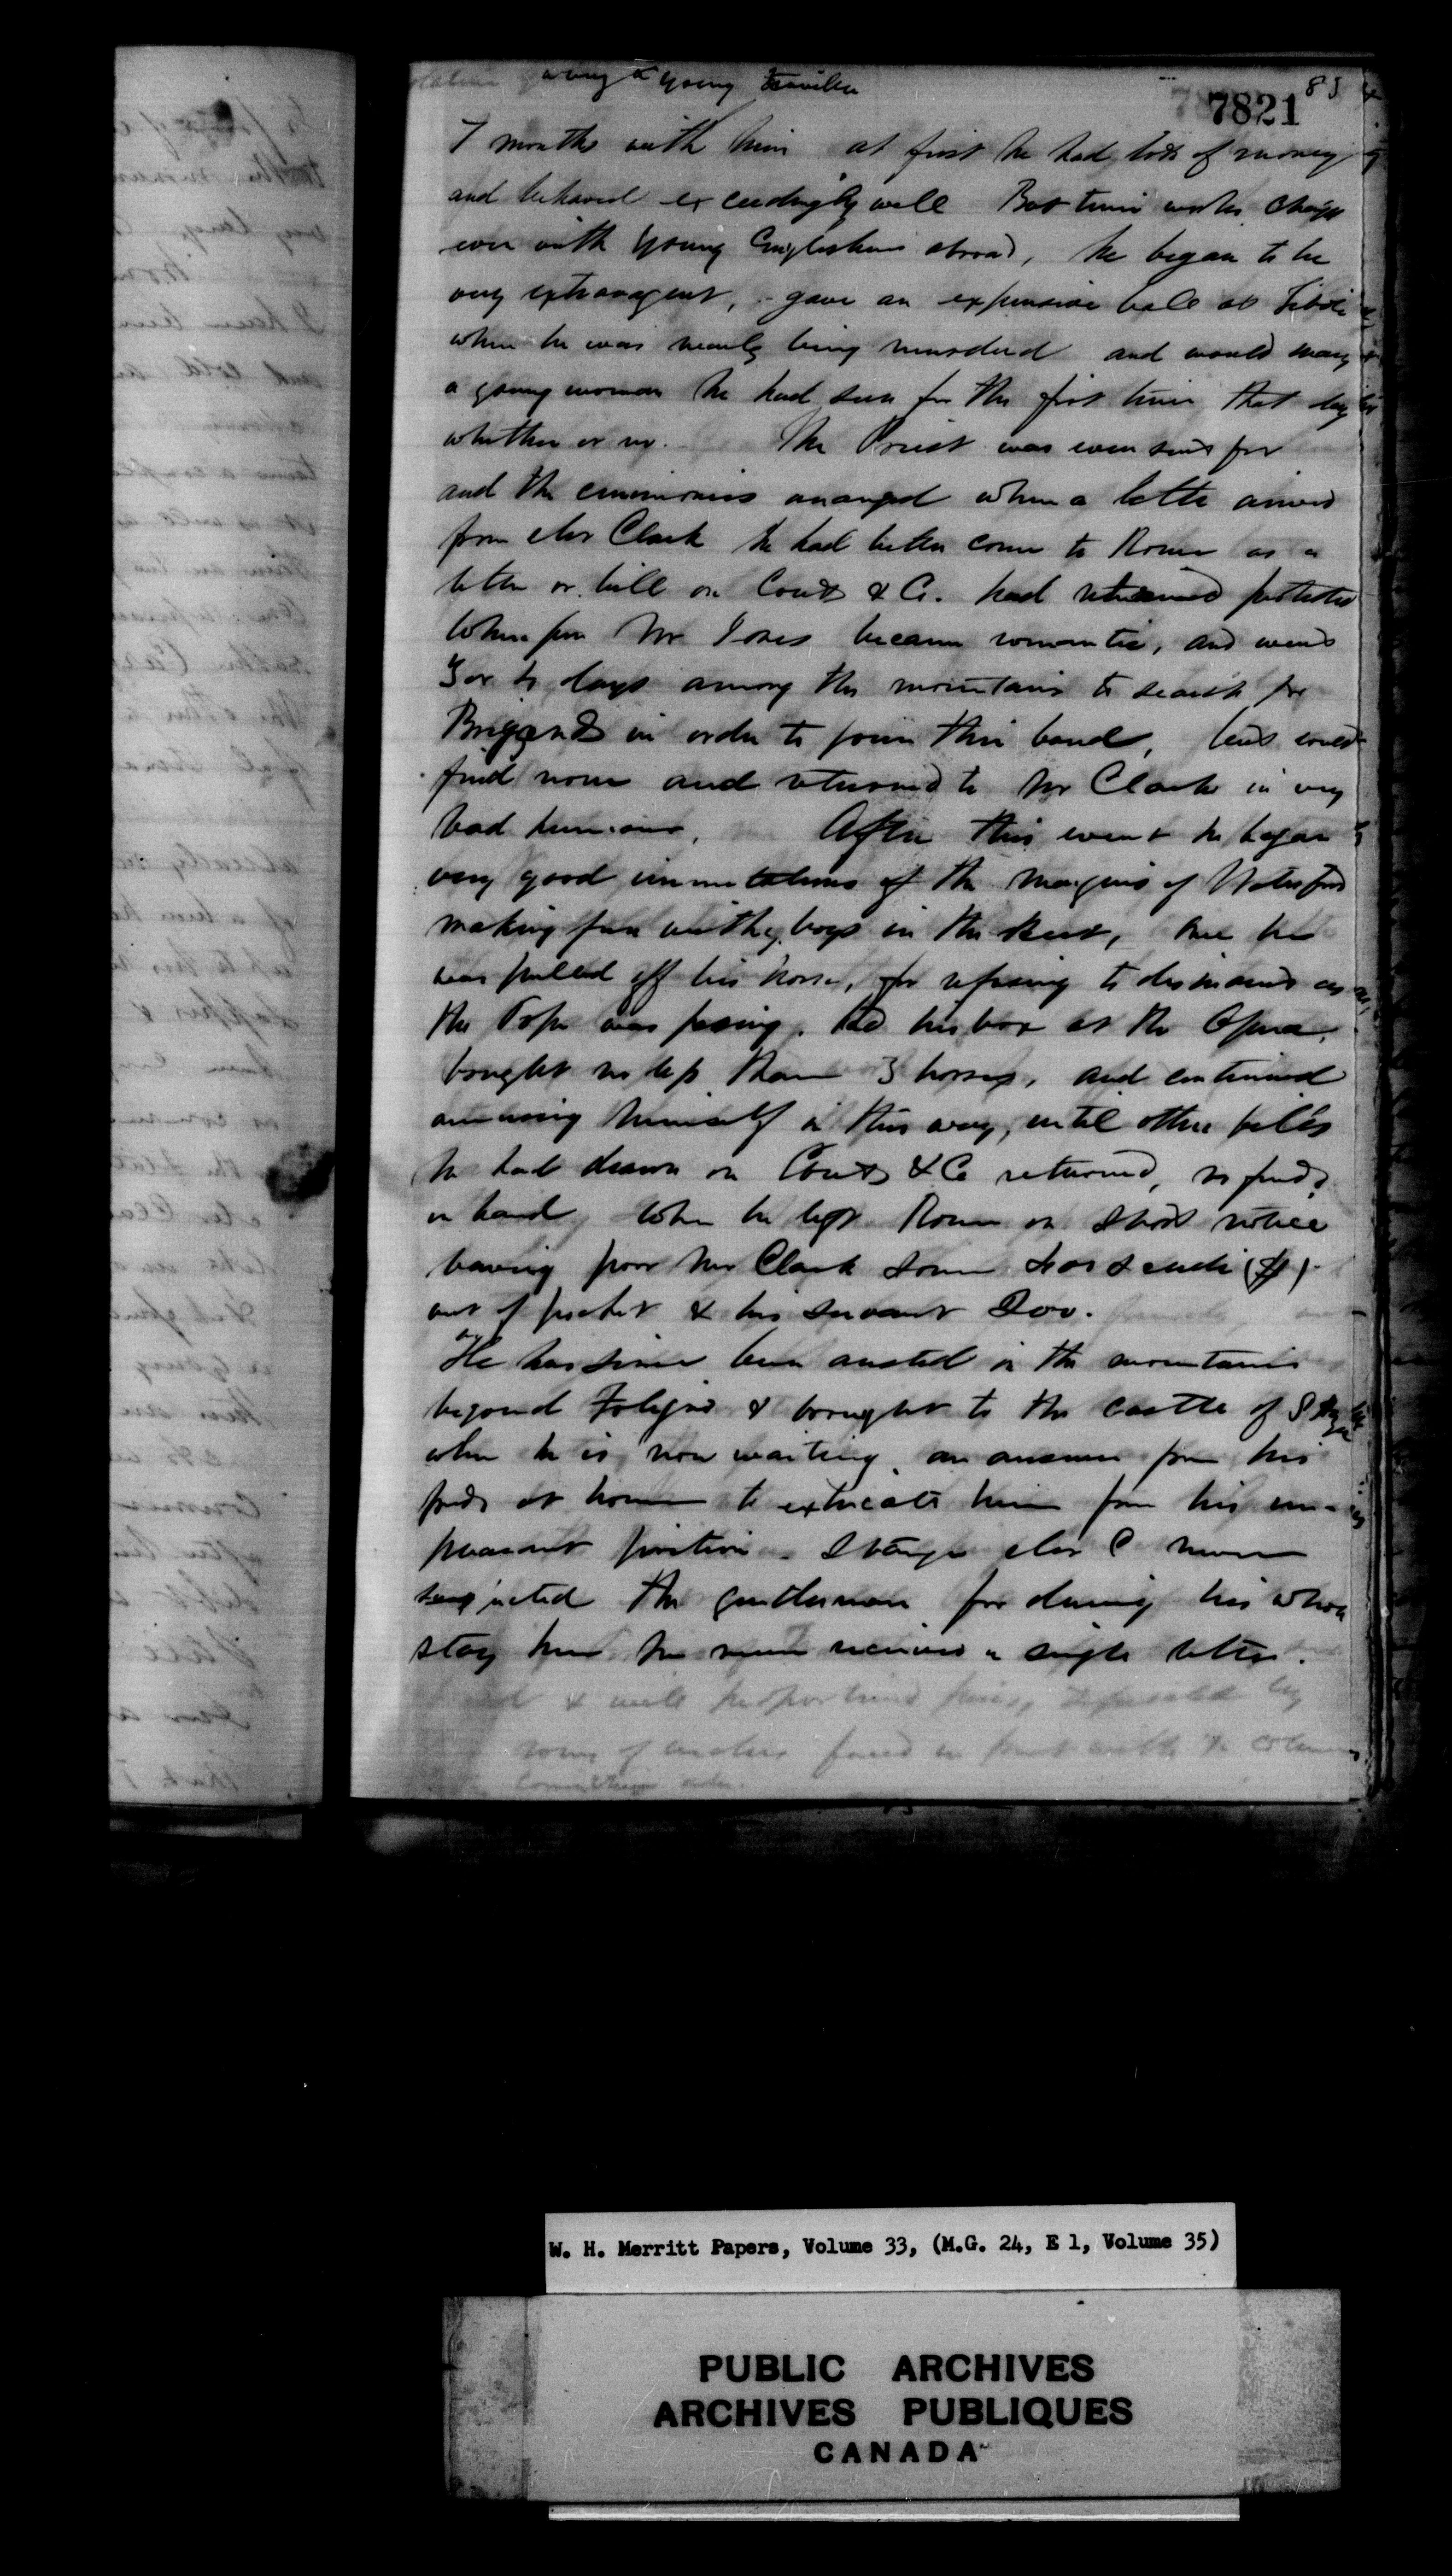 a young traveller
85
7821
7 months with him at first he had lots of money
and behaved exceedingly well But time works changes
even with young Englishmen abroad, he began to be
very extravagent, - gave an expensive ball at Tivoli
when he was nearly being murdered and would marry
a young woman he had seen for the first time that day
whether or no. The Priest was even sent for
and the ceremonies arranged when a letter arrived
from Mr Clark he had better come to Rome as a
letter or bill on Couts & Co. had returned protested
When poor Mr Jones became romantic, and went
3 or 4 days among the mountains to search for
Brigands in order to join their band, but could
find none and returned to Mr Clark in very
bad humour. After this event he began
very good immetations of the Marquis of Waterford
making fun with boys in the street, here he
was pulled off his horse, for refusing to dismount as
the Pope was passing. had his box at the Opera,
bought no less than 3 horses, and continued
amusing himself in this way, until other bills
he had drawn on Couts & Co returned, no funds
in hand, when he left Rome on short notice
leaving poor Mr Clark some scudi ($)
out of pocket & his servant 200.
He has since been arrested in the mountains
beyond Foligno & brought to the castle of St
where he is now waiting an answer from his
frds at home to extricate him from his un-
pleasant position. Strange Mr C never
suspected the gentleman for during his whole
stay here he never received a single letter.
& well proportioned
rows of arches faced in front with columns
Corinthian order.
W. H. Merritt Papers, Volume 33, (M.G. 24, E 1, Volume 35)
PUBLIC ARCHIVES
ARCHIVES PUBLIQUES
CANADA